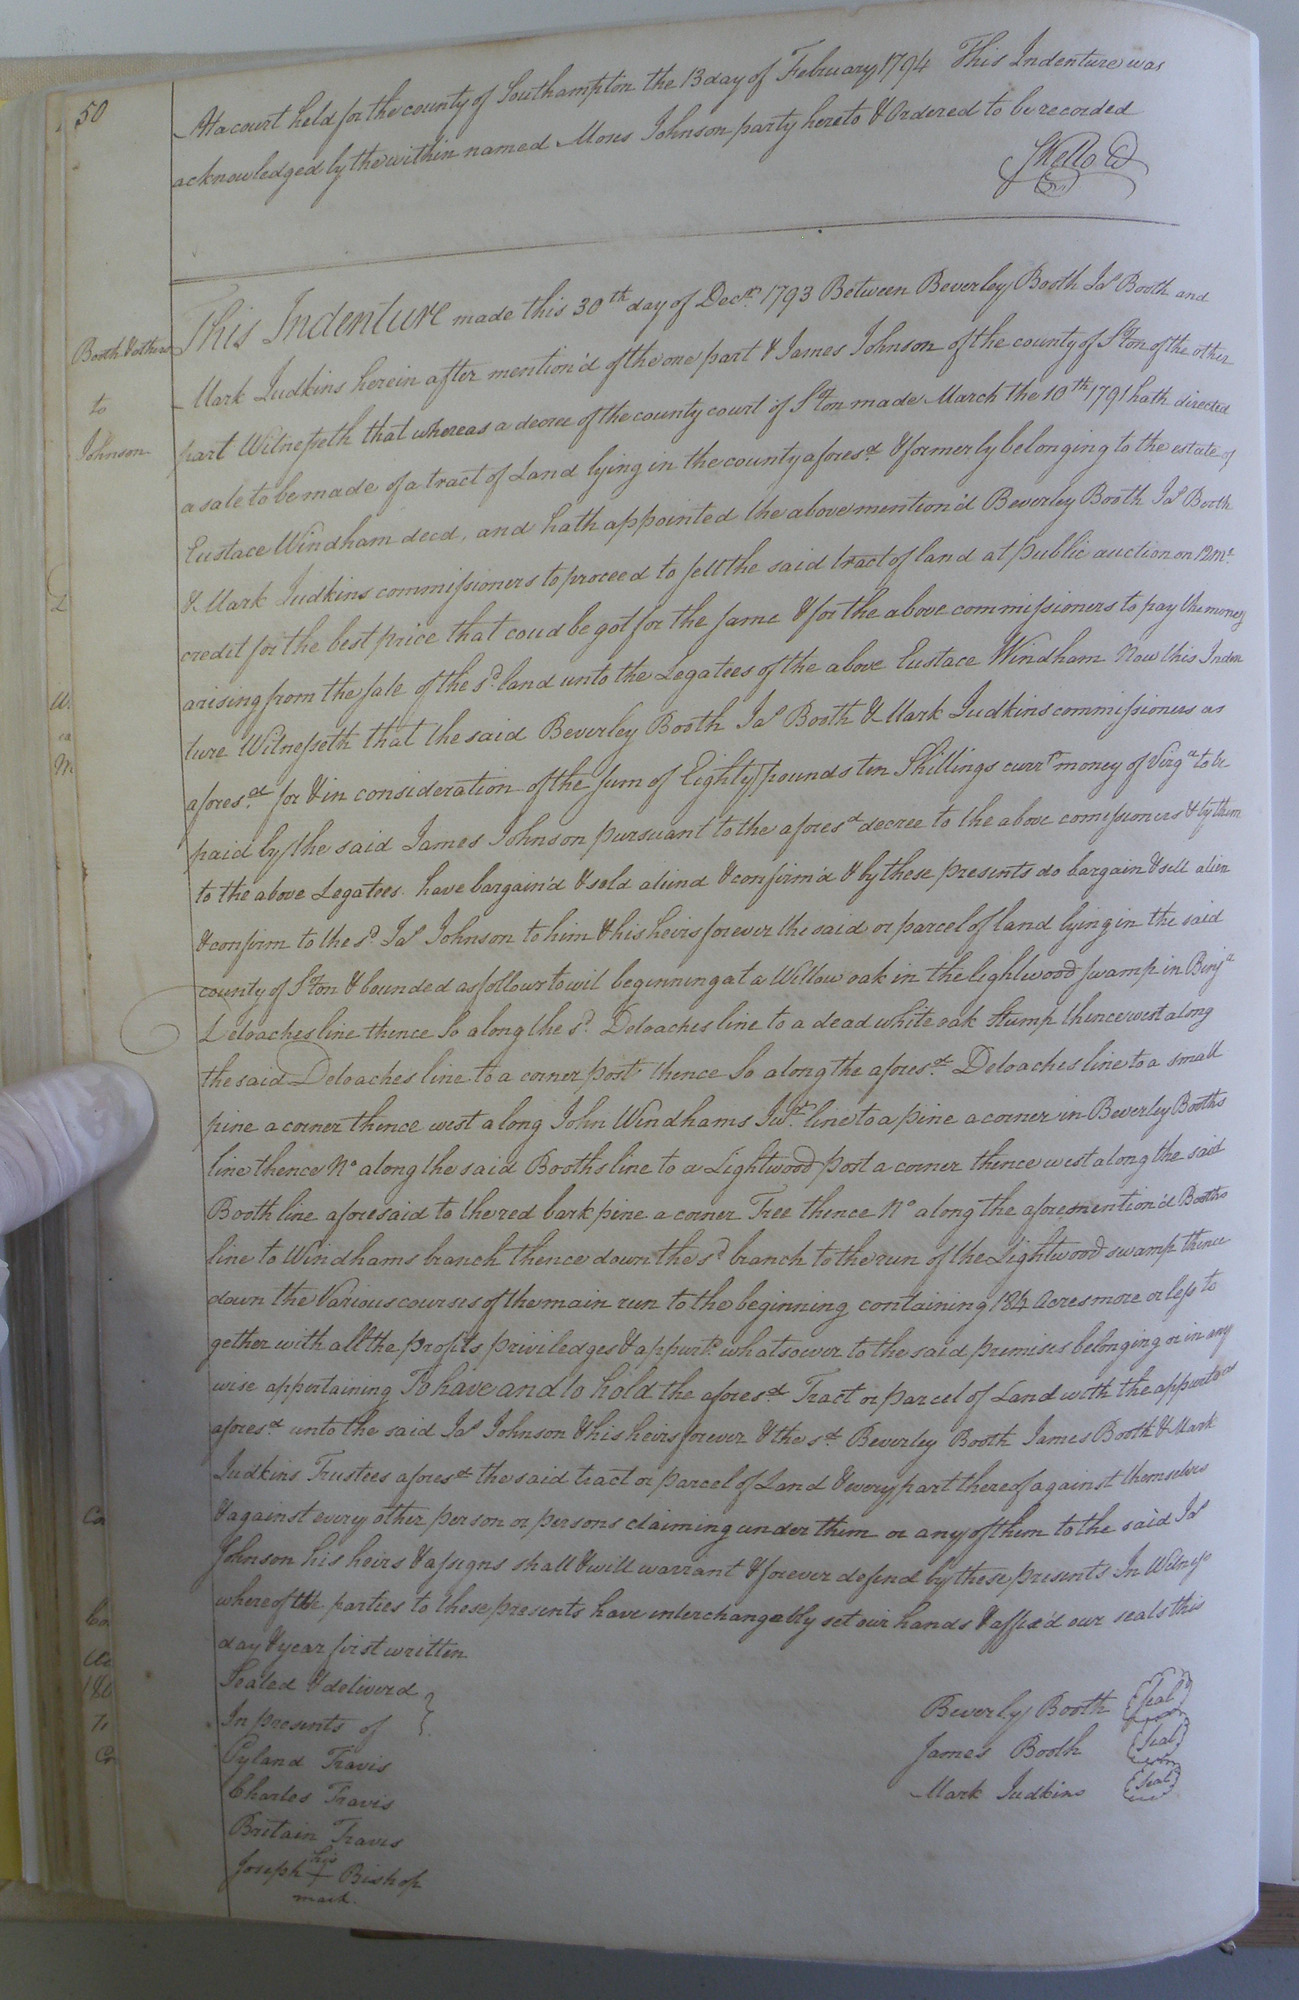 50
At a court held for the county of Southampton the 13 day of February 1794 This Indenture was
acknowledged by the within named Moses Johnson party hereto & Ordered to be recorded
Booth & others
to
Johnson
This Indenture made this 30th day of Decr. 1793 Between Beverley Booth Jas Booth and
Mark Judkins herein after mention'd of the one part & James Johnson of the county of Sthton of the other
part Witnesseth that whereas a decree of the county court of Sthton made March the 10th 1791 hath directed
a sale to be made of a tract of Land lying in the county aforesd. & formerly belonging to the estate of
Eustace Windham decd, and hath appointed the above mention'd Beverley Booth Jas Booth
& Mark Judkins commissioners to proceed to sell the said tract of land at public auction on 12 mts.
credit for the best price that coud be got for the same & for the above commissioners to pay the money
arising from the sale of the sd. land unto the Legatees of the above Eustace Windham Now this Inden
ture Witnesseth that the said Beverley Booth Jas Booth & Mark Judkins commissioners as
aforesd. for & in consideration of the sum of Eighty pounds ten Shillings currt. money of Virga. to be
paid by the said James Johnson pursuant to the aforesd. decree to the above comissioners & by them
to the above Legatees. have bargain'd & sold aliend & confirm'd & by these presents do bargain & sell alien
& confirm to the sd. Jas Johnson to him & his heirs forever the said or parcel of land lying in the said
county of Sthton & bounded as follows towit beginning at a Willow oak in the Lightwood swamp in Benja
Deloaches line thence So along the sd. Deloaches line to a dead white oak Stump thence west along
the said Deloaches line to a corner post thence So along the aforesd. Deloaches line to a small
pine a corner thence west along John Windhams Junr. line to a pine a corner in Beverley Booths
line thence No along the said Booths line to a Lightwood post a corner thence west along the said
Booth line aforesaid to the red bark pine a corner Tree thence No along the aforemention'd Booths
line to Windhams branch thence down the sd. branch to the run of the Lightwood swamp thence
down the Various courses of the main run to the beginning containing 184 Acres more or less to
gether with all the profits priviledges & appurts. whatsoever to the said premises belonging or in any
wise appertaining To have and to hold the aforesd. Tract or parcel of Land with the appurtens
aforesd. unto the said Jas Johnson & his heirs forever & the sd. Beverley Booth James Booth & Mark
Judkins Trustees aforesd. the said tract or parcel of Land & every part thereof against themselves
& against every other person or persons claiming under them or any of them to the said Jas
Johnson his heirs & assigns shall & will warrant & forever defend by these presents In Witness
whereof the parties to these presents have interchangably set our hands & affix'd our seals this
day & year first written
Sealed & deliverd
In presents of
Pyland Travis
Charles Travis
Britain Travis
Joseph his + Bishop
mark.
Beverly Booth Seal
James Booth Seal
Mark Judkins Seal